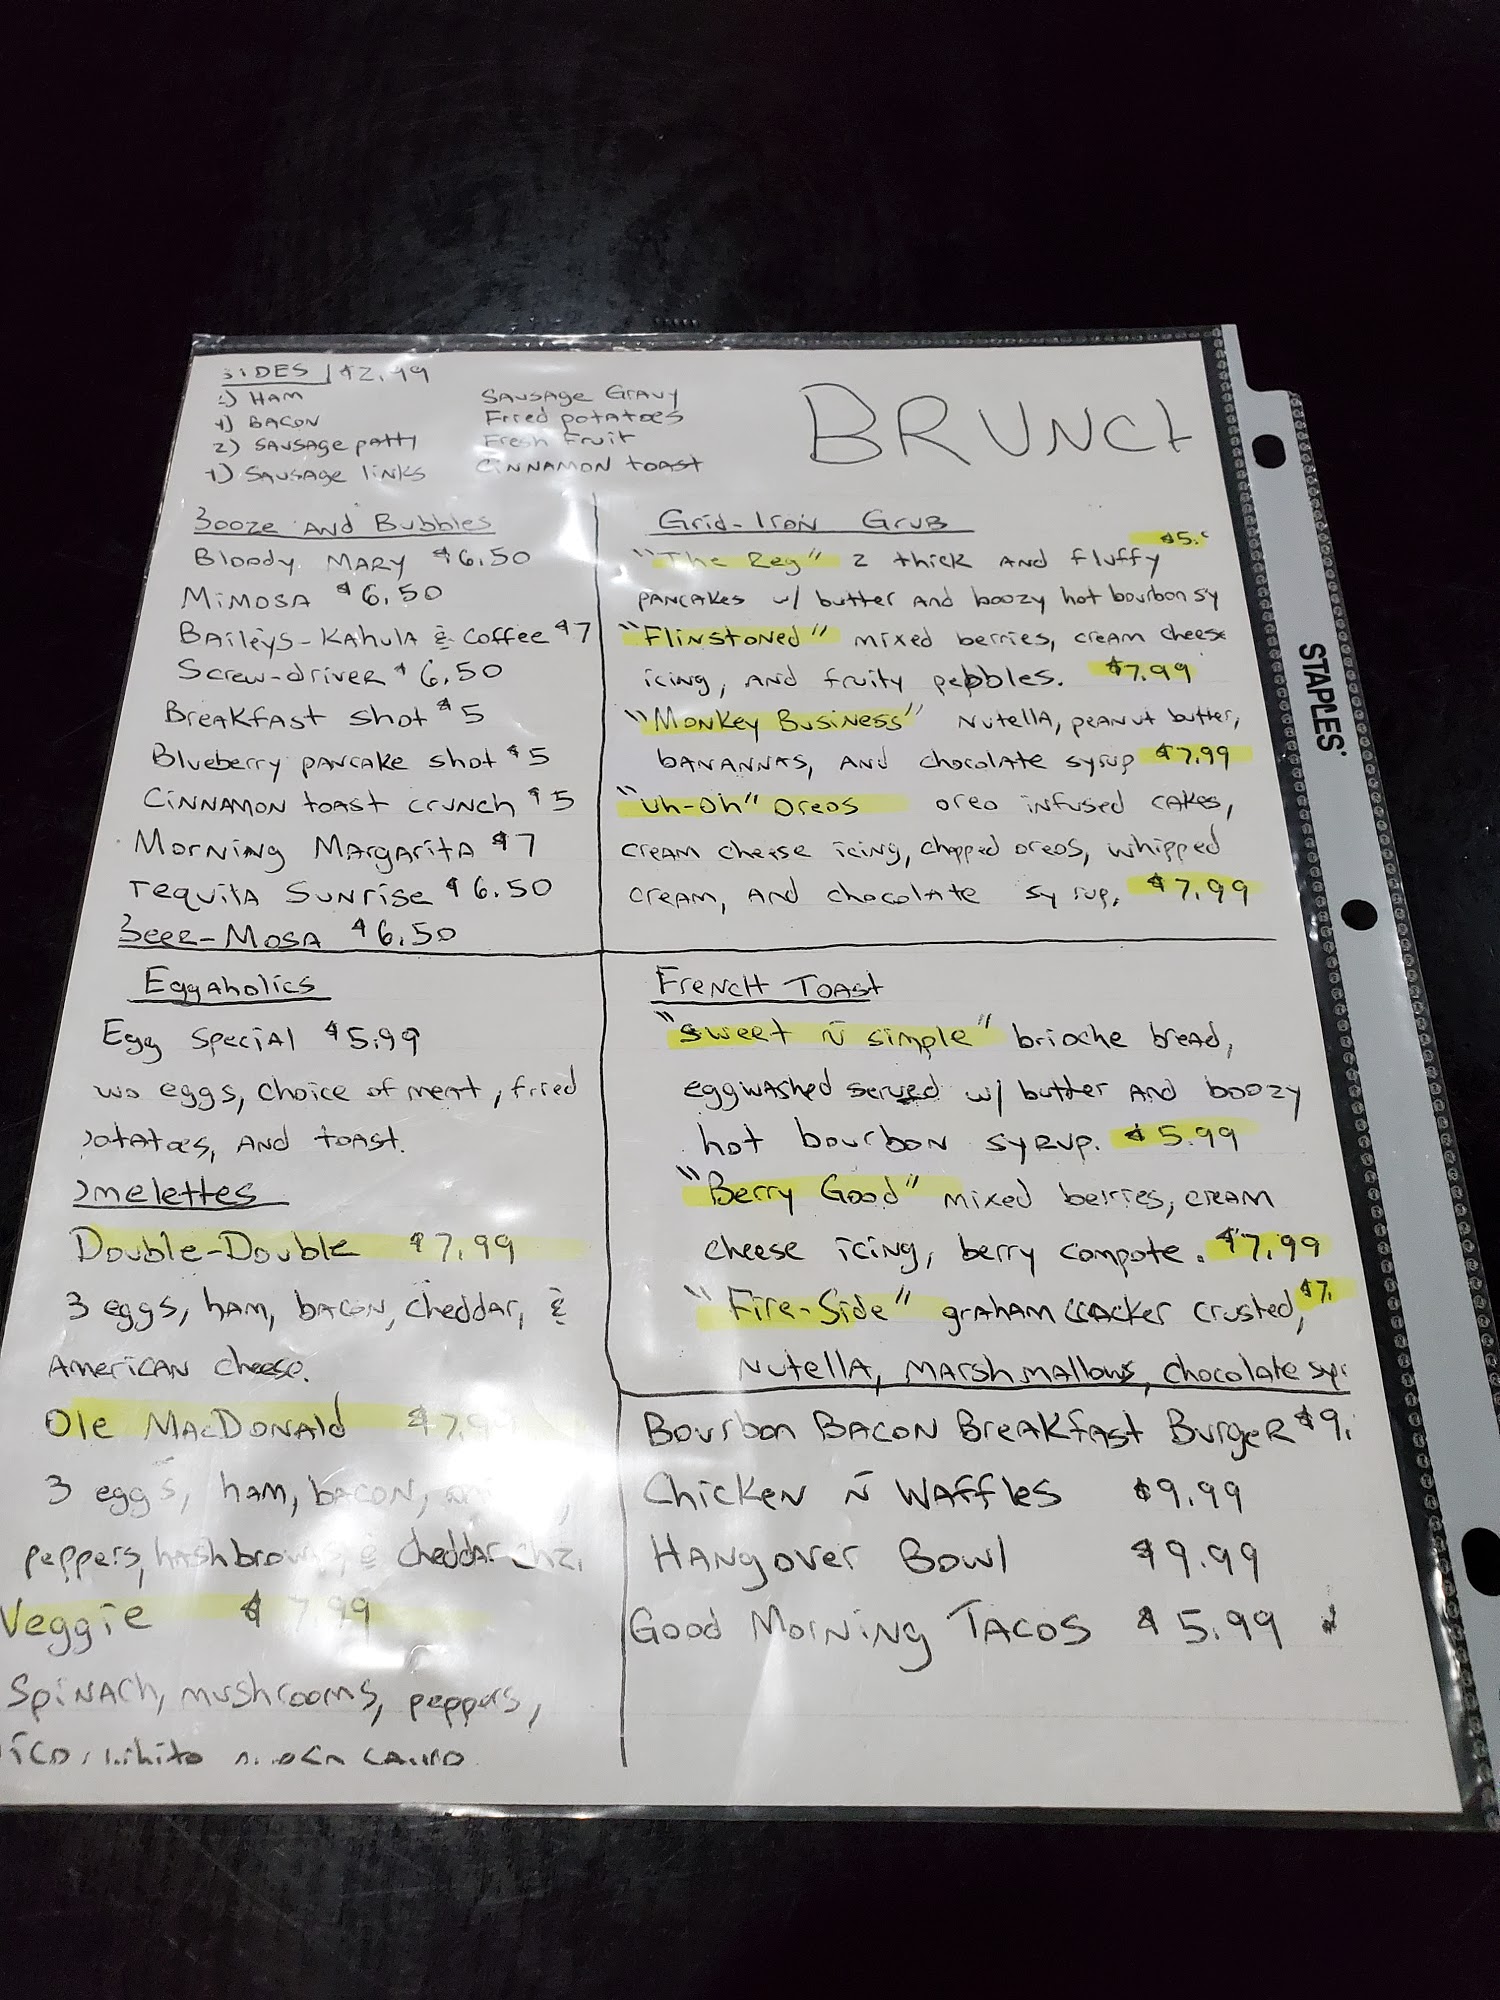 SIDES | $2.99
HAM
BACON
2) SAUSAGE PATTY
SAUSAGE LINKS
SAUSAGE GRAVY
FRIED POTATOES
FRESH FRUIT
CINNAMON TOAST
BRUNCH
Booze AND Bubbles
Bloody MARY $6.50
MIMOSA $6.50
BAILEYS-KAHULA & COFFEE $7
Screw-driver $6.50
BREAKFAST SHOT $5
Blueberry PANCAKE SHOT $5
CINNAMON TOAST CRUNCH $5
MORNING MARGARITA $7
TEQUILA SUNRISE $6.50
BEER-MOSA $6.50
Grid-Iron GRUB
"The Reg" 2 thick AND fluffy $5.
PANCAKES w/ butter AND boozy hot bourbon sy
"Flinstoned" mixed berries, cream cheese
icing, AND fruity pebbles. $7.99
"Monkey Business" NUTELLA, PEANUT butter,
BANANNAS, AND chocolate syrup $7.99
"Uh-Oh" OREOS oreo infused CAKES,
CREAM cheese icing, chopped oreos, whipped
CREAM, AND chocolate syrup. $7.99
Eggaholics
Egg Special $5.99
wo eggs, choice of meat, fried
potatoes, AND toast.
Omelettes
Double-Double $7.99
3 eggs, ham, bacon, cheddar, &
American cheese.
Ole MacDonald $7.99
3 eggs, ham, bacon,
peppers, hashbrowns, & cheddar chz.
Veggie $7.99
Spinach, mushrooms, peppers,
FRENCH TOAST
"Sweet Ñ Simple" brioche bread,
eggwashed served w/ butter AND boozy
hot bourbon syrup. $5.99
"Berry Good" mixed berries, cream
cheese icing, berry compote. $7.99
"Fire-Side" graham cracker crusted, $7.
NUTELLA, MARSHMALLOWS, chocolate syr
Bourbon BACON Breakfast Burger $9.
Chicken Ñ Waffles $9.99
Hangover Bowl $9.99
Good Morning TACOS $5.99
STAPLES